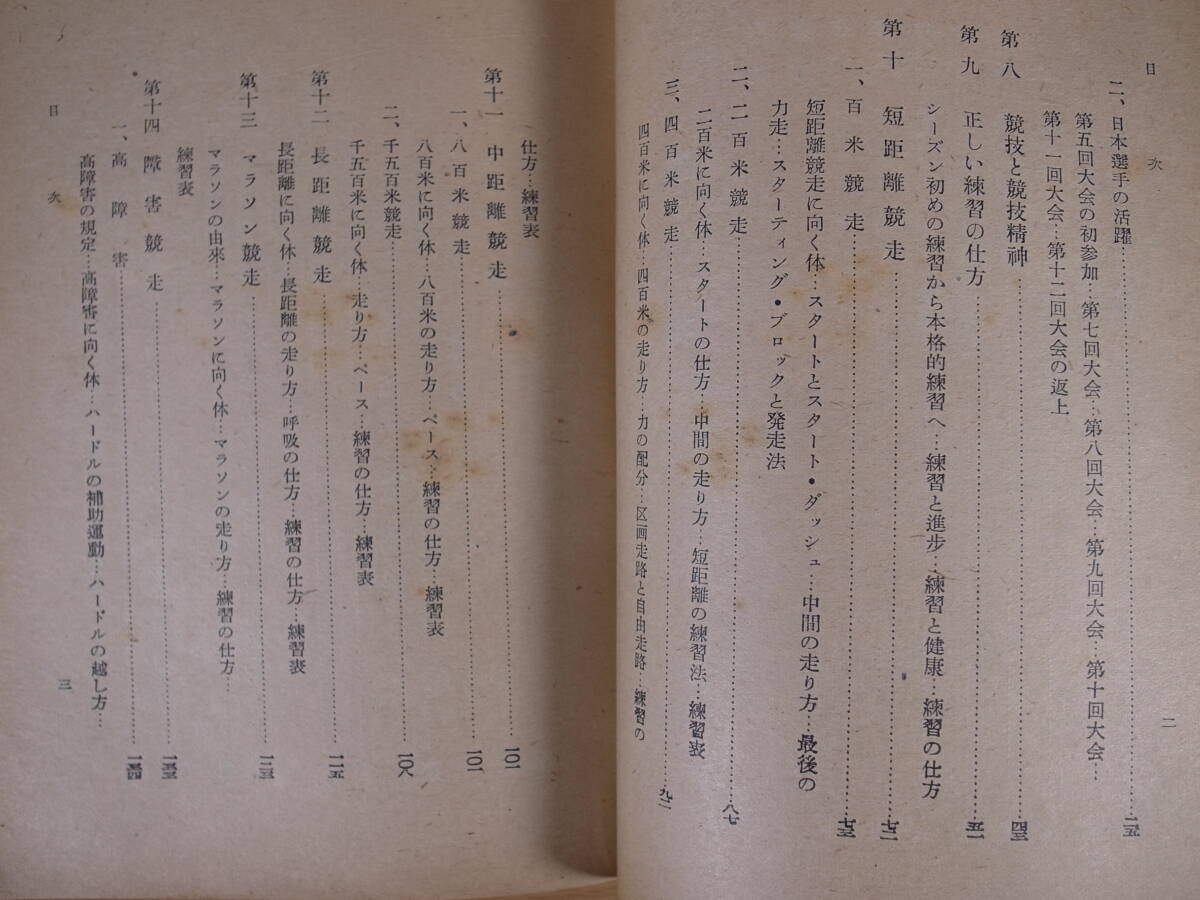 目次
二
二、日本選手の活躍……二五
第五回大会の初参加…第七回大会…第八回大会…第九回大会…第十回大会…
第十一回大会…第十二回大会の返上
第八 競技と競技精神……四三
第九 正しい練習の仕方……五一
シーズン初めの練習から本格的練習へ…練習と進歩…練習と健康…練習の仕方
第十 短距離競走……七二
一、百米競走……七三
短距離競走に向く体…スタートとスタート・ダッシュ…中間の走り方…最後の
力走…スターティング・ブロックと発走法
二、二百米競走……八七
二百米に向く体…スタートの仕方…中間の走り方…短距離の練習法…練習表
三、四百米競走……九二
四百米に向く体…四百米の走り方…力の配分…区画走路と自由走路…練習の
仕方…練習表
第十一 中距離競走……一〇一
一、八百米競走……一〇一
八百米に向く体…八百米の走り方…ペース…練習の仕方…練習表
二、千五百米競走……一〇八
千五百米に向く体…走り方…ペース…練習の仕方…練習表
第十二 長距離競走……一一五
長距離に向く体…長距離の走り方…呼吸の仕方…練習の仕方…練習表
第十三 マラソン競走……一二五
マラソンの由来…マラソンに向く体…マラソンの走り方…練習の仕方…
練習表
第十四 障害競走……一三三
一、高障害……一三四
高障害の規定…高障害に向く体…ハードルの補助運動…ハードルの越し方…
目次
三